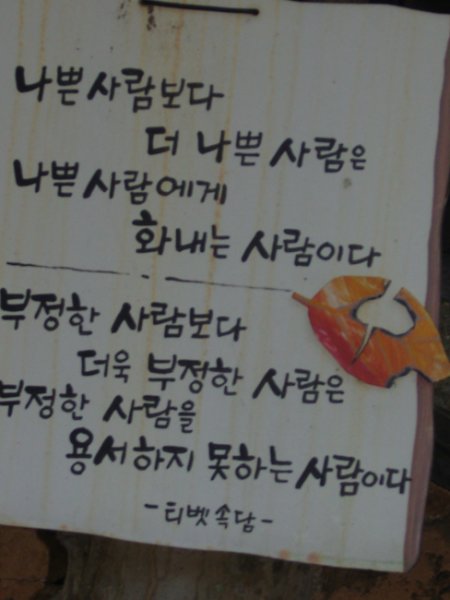 나쁜 사람보다
더 나쁜 사람은
나쁜 사람에게
화내는 사람이다
부정한 사람보다
더욱 부정한 사람은
부정한 사람을
용서하지 못하는 사람이다
-티벳속담-